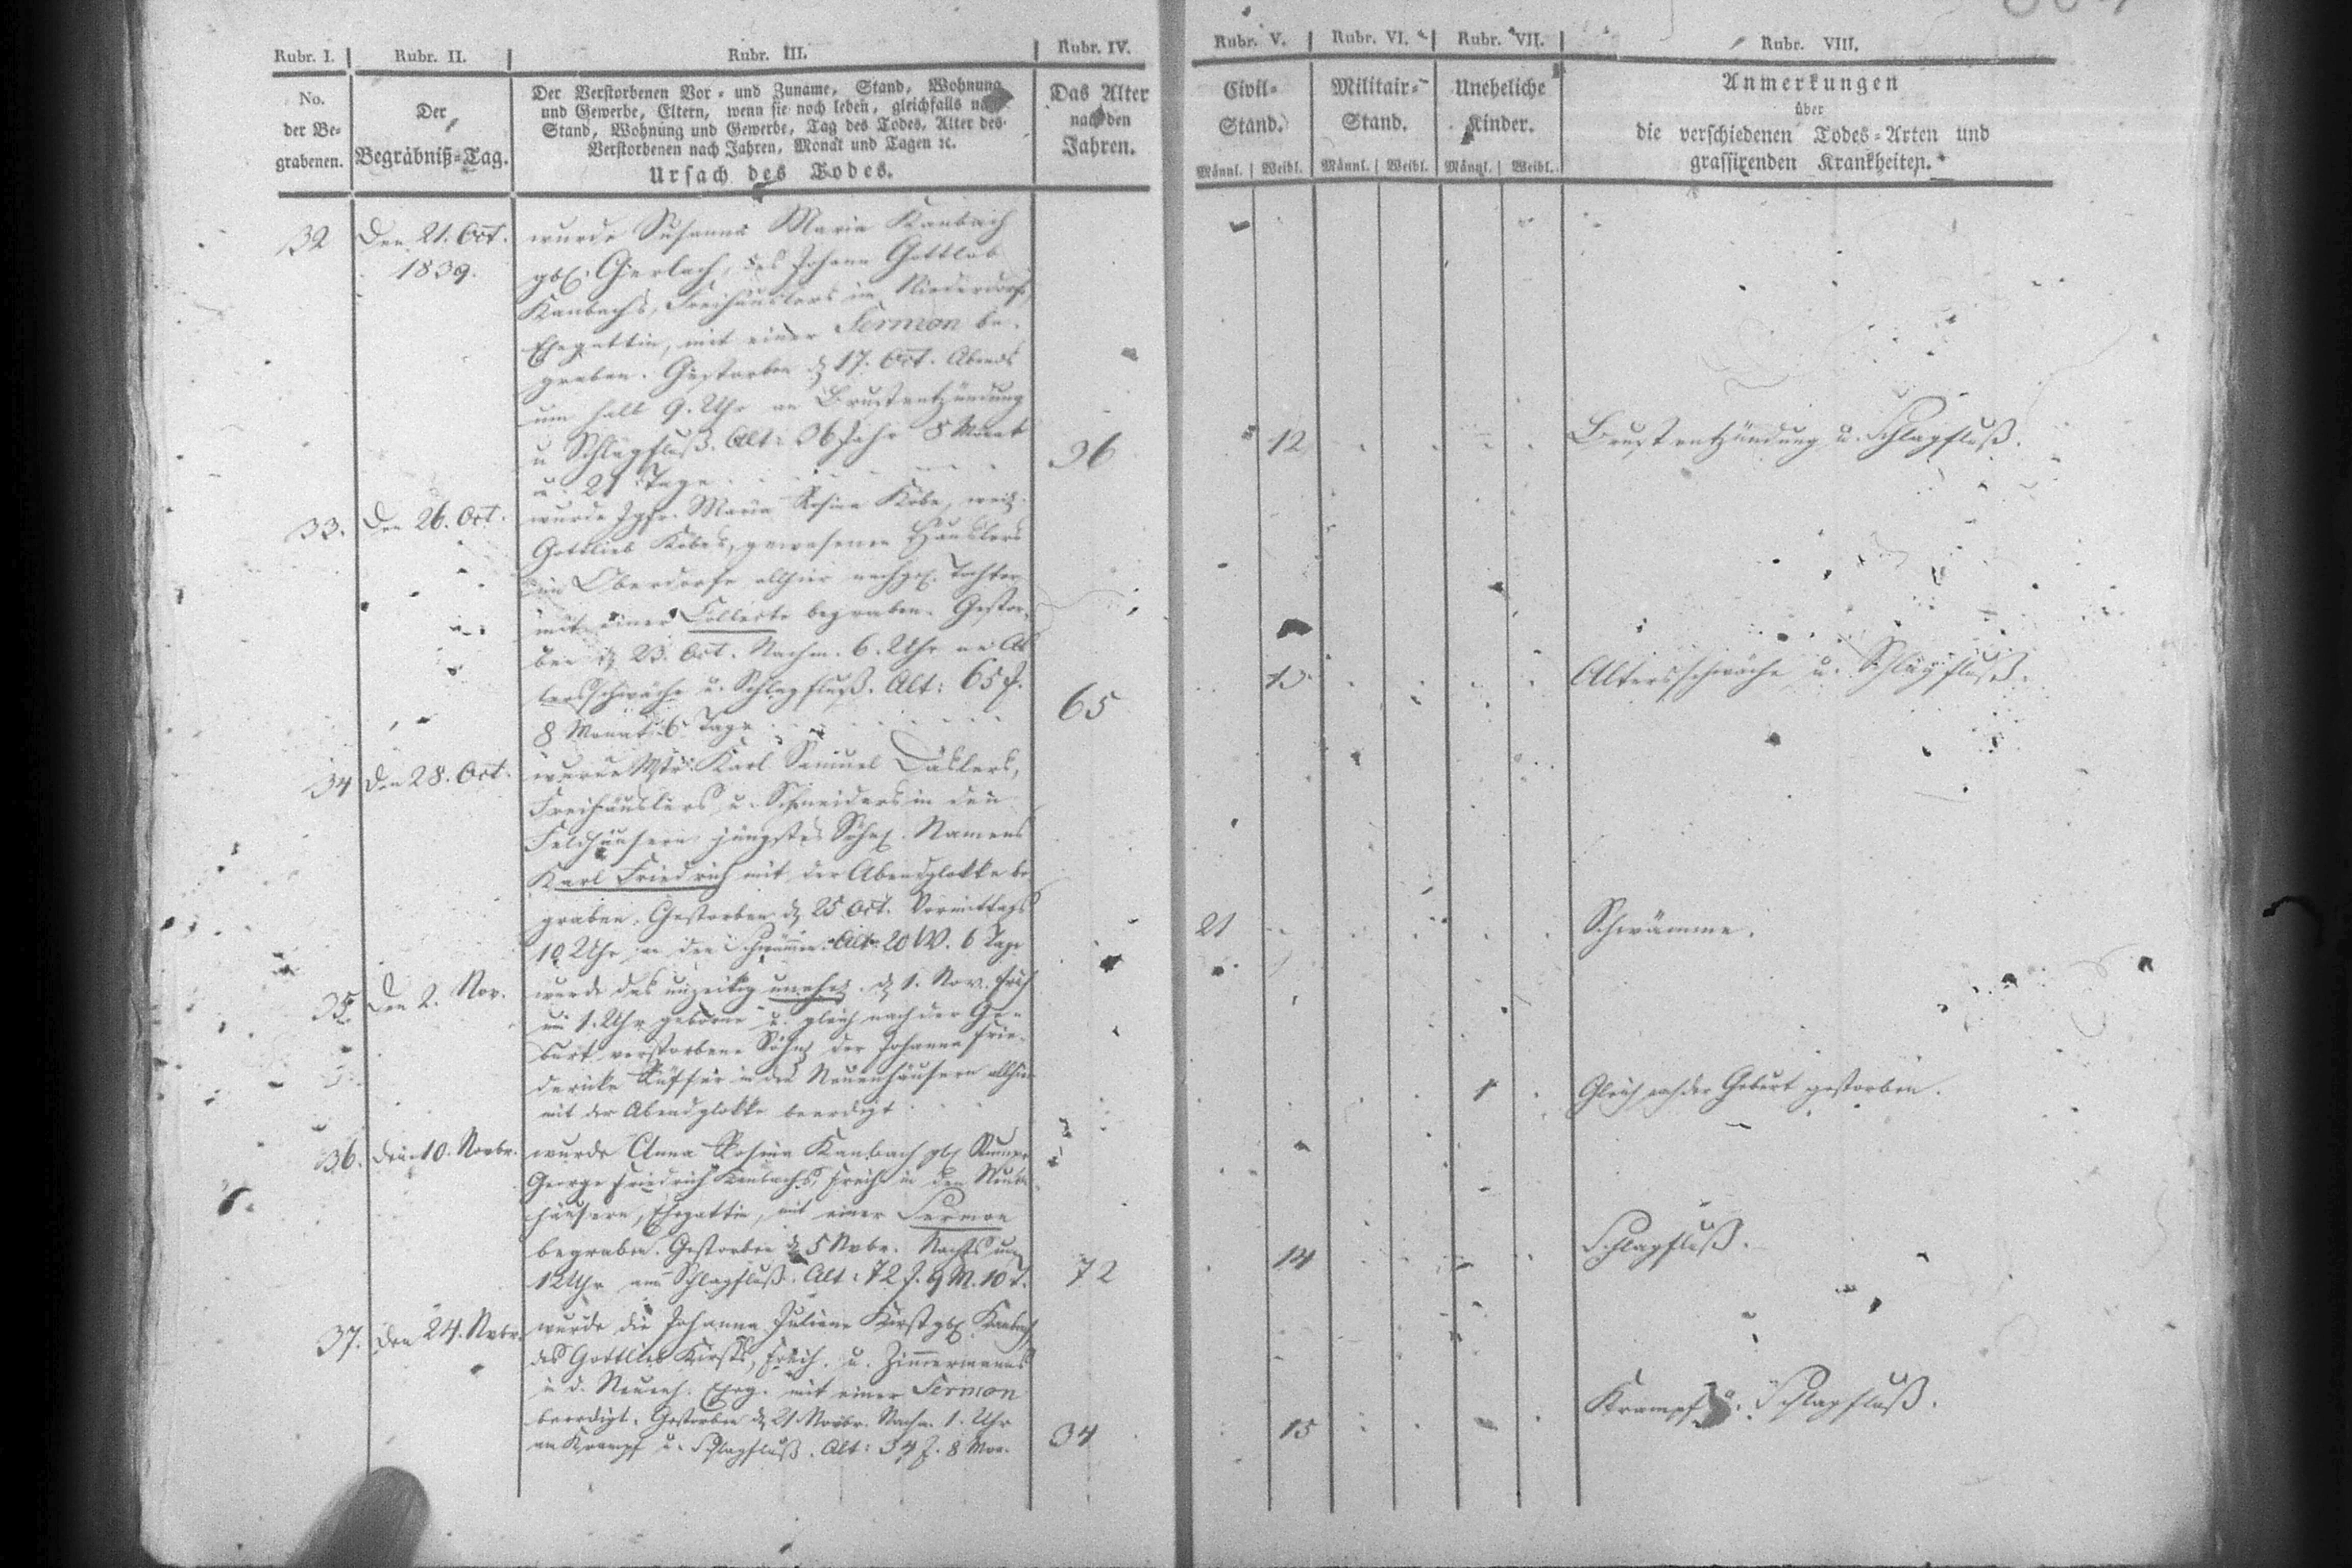 Rubr. I. Rubr. II. Rubr. III. Rubr. IV. Rubr. V. Rubr. VI. Rubr. VII. Rubr. VIII.
No. der Be= grabenen.
Der Begräbniß=Tag.
Der Verstorbenen Vor= und Zuname, Stand, Wohnung
und Gewerbe, Eltern, wenn sie noch leben, gleichfalls nach
Stand, Wohnung und Gewerbe, Tag des Todes, Alter des
Verstorbenen nach Jahren, Monat und Tagen ꝛc.
Ursach des Todes.
Das Alter
nach den
Jahren.
Civil=
Stand.
Männl. Weibl.
Militair=
Stand.
Männl. Weibl.
Uneheliche
Kinder.
Männl. Weibl.
Anmerkungen
über
die verschiedenen Todes=Arten und
grassirenden Krankheiten.
32 Den 21. Oct. 1839.
wurde Susanna Maria Kanbach
Gerlach, des Johann Gottlob
Kanbachs, Freihäuslers im Niederdorfe
Ehegattin, mit einer Sermon be-
graben. Gestorben d. 17. Oct. Abends
um halb 9. Uhr an Brustentzündung
u. Schlagfluß. Alt: 36 Jahr 8 Monat
u. 21 Tage
36 12 Brustentzündung u. Schlagfluß.
33. Den 26. Oct.
wurde Jgfr. Maria Rosina Kobe, weil.
Gottlieb Kobes, gewesenen Häuslers
im Oberdorfe allhier Tochter
mit einer Collecte begraben. Gestor-
ben d. 23. Oct. Nachm. 6. Uhr an Al
tersschwäche u. Schlagfluß. Alt: 65 J.
8 Monat 6 Tage
65 13 Altersschwäche u. Schlagfluß.
34 Den 28. Oct.
wurde Mstr. Karl Samuel
Freihäuslers u. Schneiders in den
Feldhäusern jüngstes Söhnl. Namens
Karl Friedrich mit der Abendglokke be
graben. Gestorben d. 25 Oct. Vormittags
10 Uhr an den Schwämmen. Alt: 20 W. 6 Tage
21 Schwämme.
35. Den 2. Nov.
wurde das unzeitig unehel. d. 1. Nov. früh
um 1. Uhr geborne u. gleich nach der Ge-
burt verstorbene Söhnl. der Johanne Frie-
dericke in den Neuenhäusern allhier
mit der Abendglokke beerdigt
1 Gleich nach der Geburt gestorben.
36. Den 10. Novbr.
wurde Anna Rosina Kanbach
George Friedrich Kanbachs, Freih. in den Neuen
häusern, Ehegattin, mit einer Sermon
begraben. Gestorben d. 5 Nvbr. Nachts um
12 Uhr am Schlagfluß. Alt: 72 J. 9 M. 10 T.
72 14 Schlagfluß.
37. Den 24. Nvbr.
wurde die Johanne Juliane Kirst Kanbach,
des Gottlieb Kirsts, Freih. u. Zimmermanns
in d. Neuenh. Eheg. mit einer Sermon
beerdigt. Gestorben d. 21. Novbr. Nachm. 1. Uhr
an Krampf u. Schlagfluß. Alt: 34 J. 8 Mon.
34 15 Krampf u. Schlagfluß.